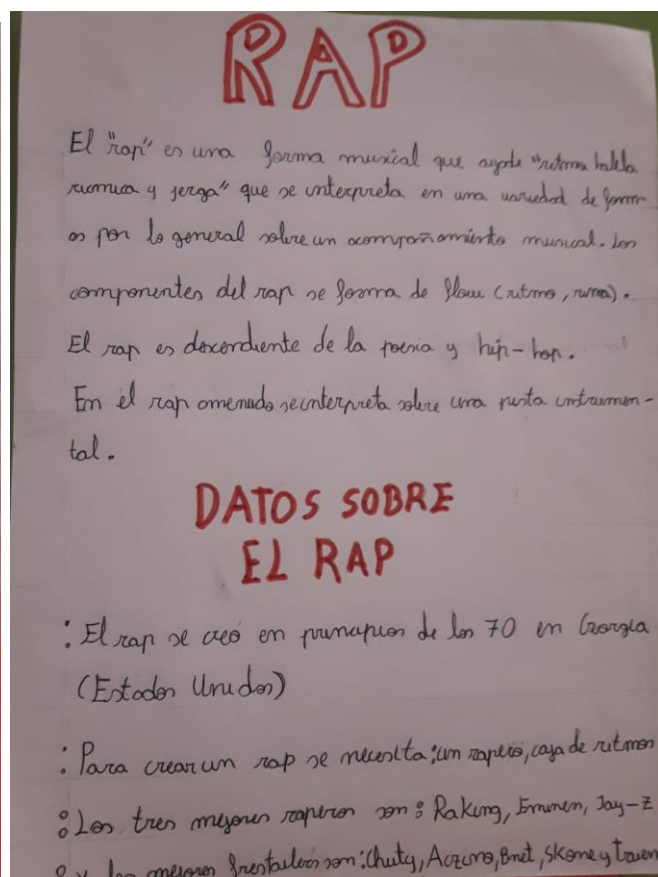 RAP
El "rap" es una forma musical que ayade "ritmo habla
riumica y jerga" que se interpreta en una variedad de form-
as por lo general sobre un acompañamiento musical. Los
componentes del rap se forma de flow (ritmo, rima).
El rap es descendiente de la poesia y hip-hop.
En el rap amenudo se interpreta sobre una pista intrumen-
tal.
DATOS SOBRE
EL RAP
: El rap se creó en principios de los 70 en Georgia
(Estados Unidos)
: Para crear un rap se necesita: un rapero, caja de ritmos
: Los tres mejores raperos son: Raking, Eminen, Jay-Z
y los mejores son: Chuty, Aczino, Bnet, Skone y